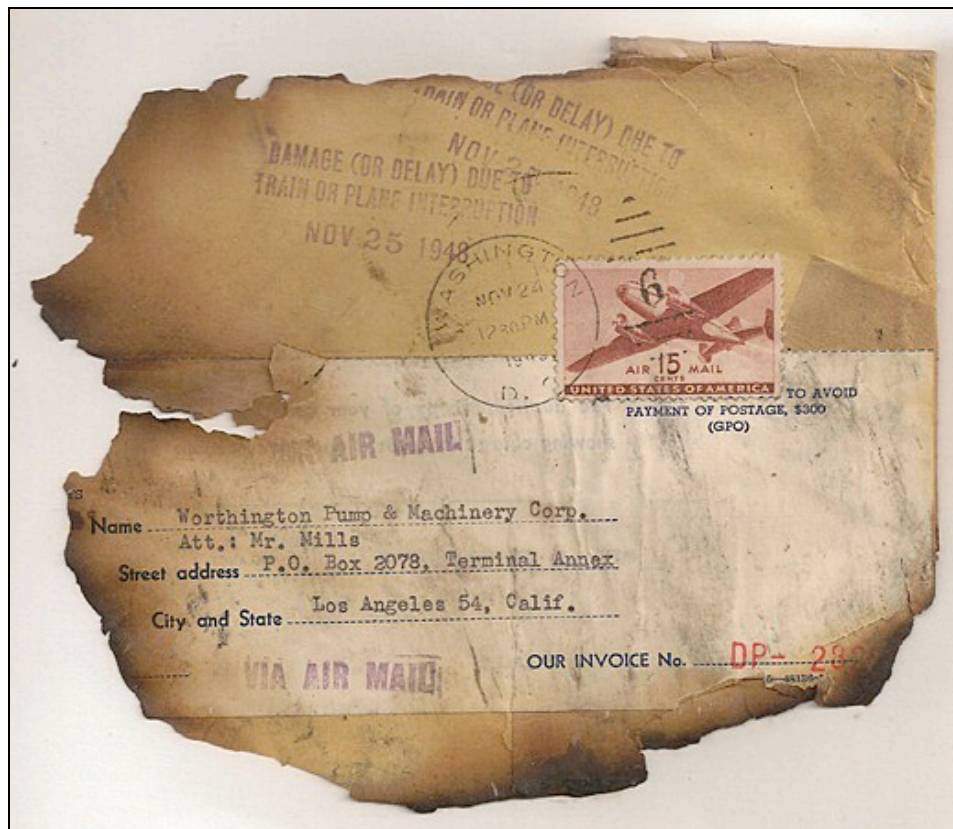 DAMAGE (OR DELAY) DUE TO
TRAIN OR PLANE INTERRUPTION
NOV 25 1948
(OR DELAY) DUE TO
TRAIN OR PLANE INTERRUPTION
NOV 25 1948
WASHINGTON
NOV 24
12 30 PM
D.
6
AIR 15 MAIL
CENTS
UNITED STATES OF AMERICA
TO AVOID
PAYMENT OF POSTAGE, $300
(GPO)
AIR MAIL
Name Worthington Pump & Machinery Corp.
Att.: Mr. Mills
Street address P.O. Box 2078, Terminal Annex
City and State Los Angeles 54, Calif.
VIA AIR MAIL
OUR INVOICE No. DP- 28